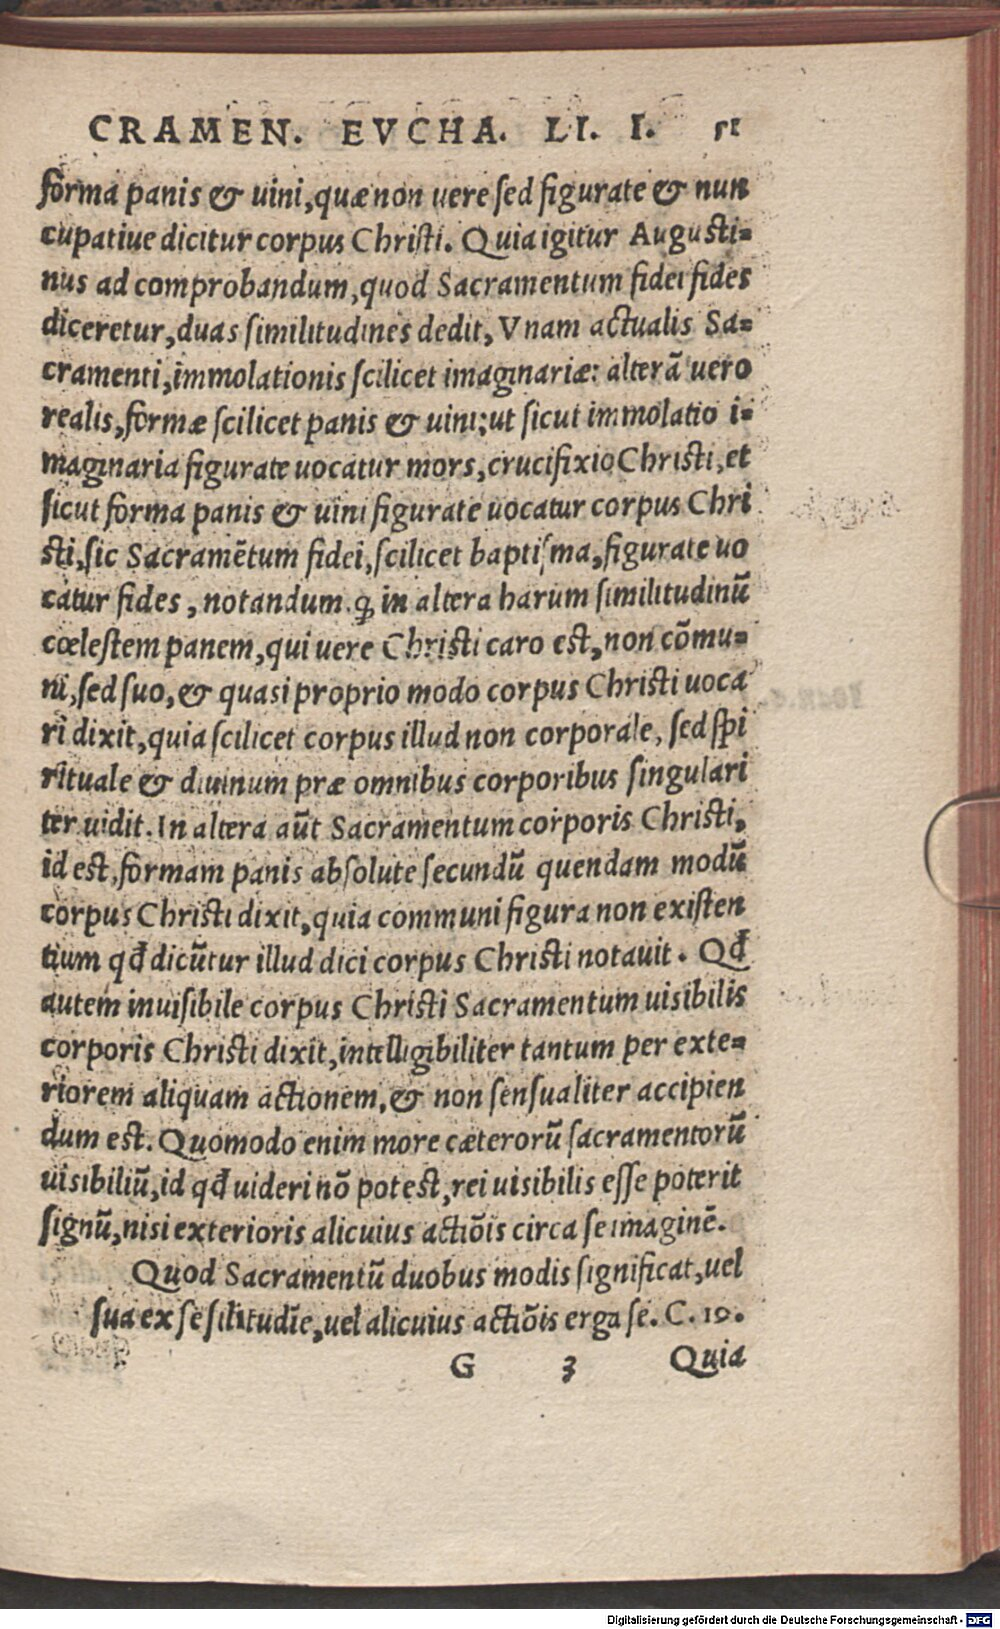 CRAMEN. EVCHA. LI. I. 51
forma panis & uini, quæ non uere sed figurate & nun
cupatiue dicitur corpus Christi. Quia igitur Augusti=
nus ad comprobandum, quod Sacramentum fidei fides
diceretur, duas similitudines dedit, Vnam actualis Sa=
cramenti, immolationis scilicet imaginariæ: alterā uero
realis, formæ scilicet panis & uini; ut sicut immolatio i=
maginaria figurate uocatur mors, crucifixio Christi, et
sicut forma panis & uini figurate uocatur corpus Chri
sti, sic Sacramētum fidei, scilicet baptisma, figurate uo
catur fides, notandum ꝙ in altera harum similitudinū
cœlestem panem, qui uere Christi caro est, non cōmu=
ni, sed suo, & quasi proprio modo corpus Christi uoca
ri dixit, quia scilicet corpus illud non corporale, sed spi
rituale & diuinum præ omnibus corporibus singulari
ter uidit. In altera aūt Sacramentum corporis Christi,
id est, formam panis absolute secundū quendam modū
corpus Christi dixit, quia communi figura non existen
tium qđ dicūtur illud dici corpus Christi notauit. Qđ
autem inuisibile corpus Christi Sacramentum uisibilis
corporis Christi dixit, intelligibiliter tantum per exte=
riorem aliquam actionem, & non sensualiter accipien
dum est. Quomodo enim more cæterorū sacramentorū
uisibiliū, id qđ uideri nō potest, rei uisibilis esse poterit
signū, nisi exterioris alicuius actiōis circa se imaginē.
Quod Sacramentū duobus modis significat, uel
sua ex se silitudīe, uel alicuius actiōis erga se. C. 19.
G 3 Quia
Digitalisierung gefördert durch die Deutsche Forschungsgemeinschaft - DFG